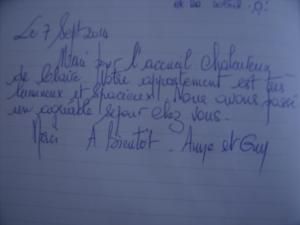 Le 7 Sept 2014
Merci pour l'accueil chaleureux
de Claire. Votre appartement est très
lumineux et spacieux. Nous avons passé
un agréable séjour chez vous.
Merci A Bientôt. Anya et Guy